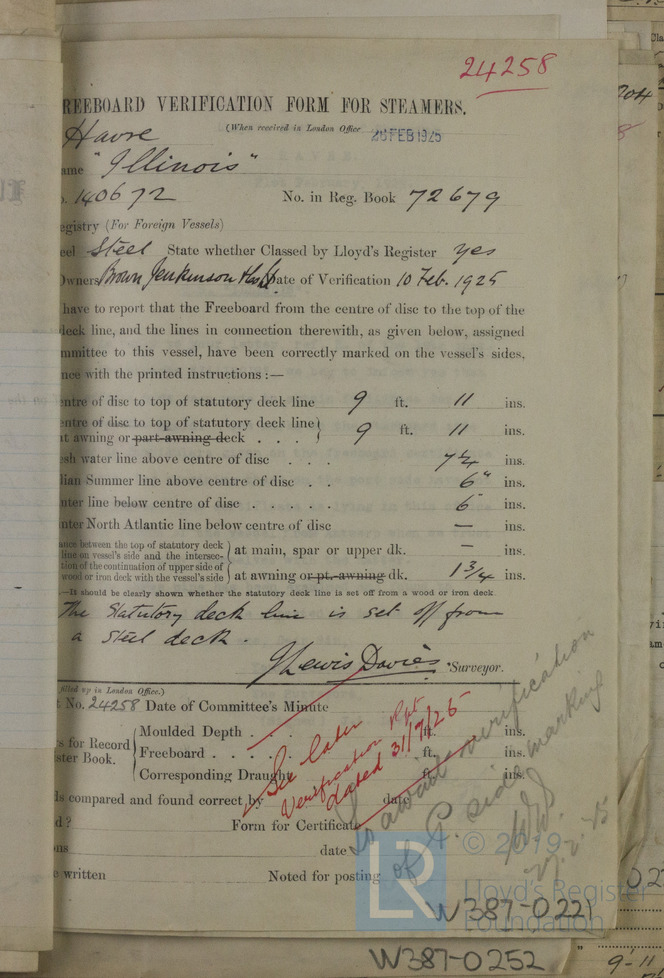 24258
REEBOARD VERIFICATION FORM FOR STEAMERS.
(When received in London Office 26 FEB 1925
Havre
ame "Illinois"
o. 140672 No. in Reg. Book 72679
egistry (For Foreign Vessels)
eel Steel State whether Classed by Lloyd's Register yes
Owners Brown Jenkinson Date of Verification 10 Feb. 1925
have to report that the Freeboard from the centre of disc to the top of the
deck line, and the lines in connection therewith, as given below, assigned
mmittee to this vessel, have been correctly marked on the vessel's sides,
nce with the printed instructions :—
entre of disc to top of statutory deck line 9 ft. 11 ins.
entre of disc to top of statutory deck line
at awning or part-awning deck . . . 9 ft. 11 ins.
esh water line above centre of disc . . . 7¼ ins.
dian Summer line above centre of disc . . 6" ins.
nter line below centre of disc . . . . . 6 ins.
nter North Atlantic line below centre of disc — ins.
ance between the top of statutory deck
line on vessel's side and the intersec-
tion of the continuation of upper side of
wood or iron deck with the vessel's side
at main, spar or upper dk. — ins.
at awning or pt.-awning dk. 1¾ ins.
—It should be clearly shown whether the statutory deck line is set off from a wood or iron deck
The Statutory deck line is set off from
a steel deck.
J Lewis Davies Surveyor.
filled up in London Office.)
t No. 24258 Date of Committee's Minute
rs for Record
ster Book.
Moulded Depth . ft. ins.
Freeboard . . . . ft. ins.
Corresponding Draught ft. ins.
ls compared and found correct by date
d ? Form for Certificate
ons date
e written Noted for posting
See later
Verification Rpt
dated 31/7/25
To await verification
of P. side marking
27.2.25
© 2019
LR
Lloyd's Register
Foundation
W387-0221
W387-0252
204
9-11